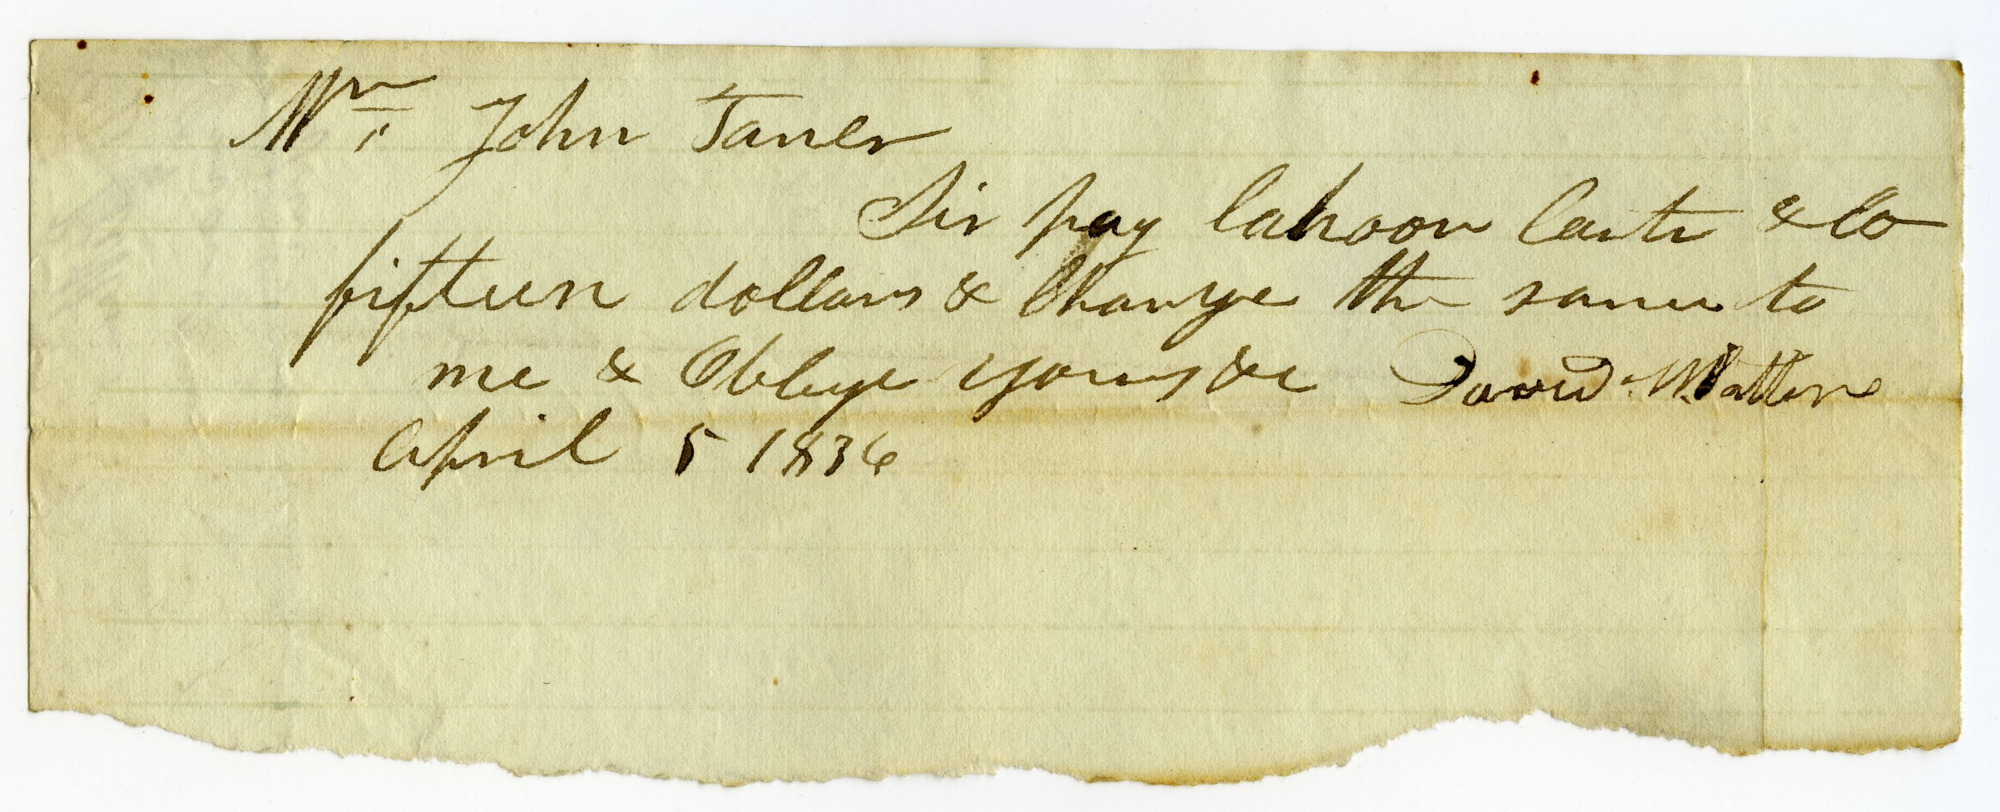 Mr. John Taner
Sir pay Cahoon Carter & Co
fifteen dollars & Charge the same to
me & Oblige yours &c David
April 5 1836